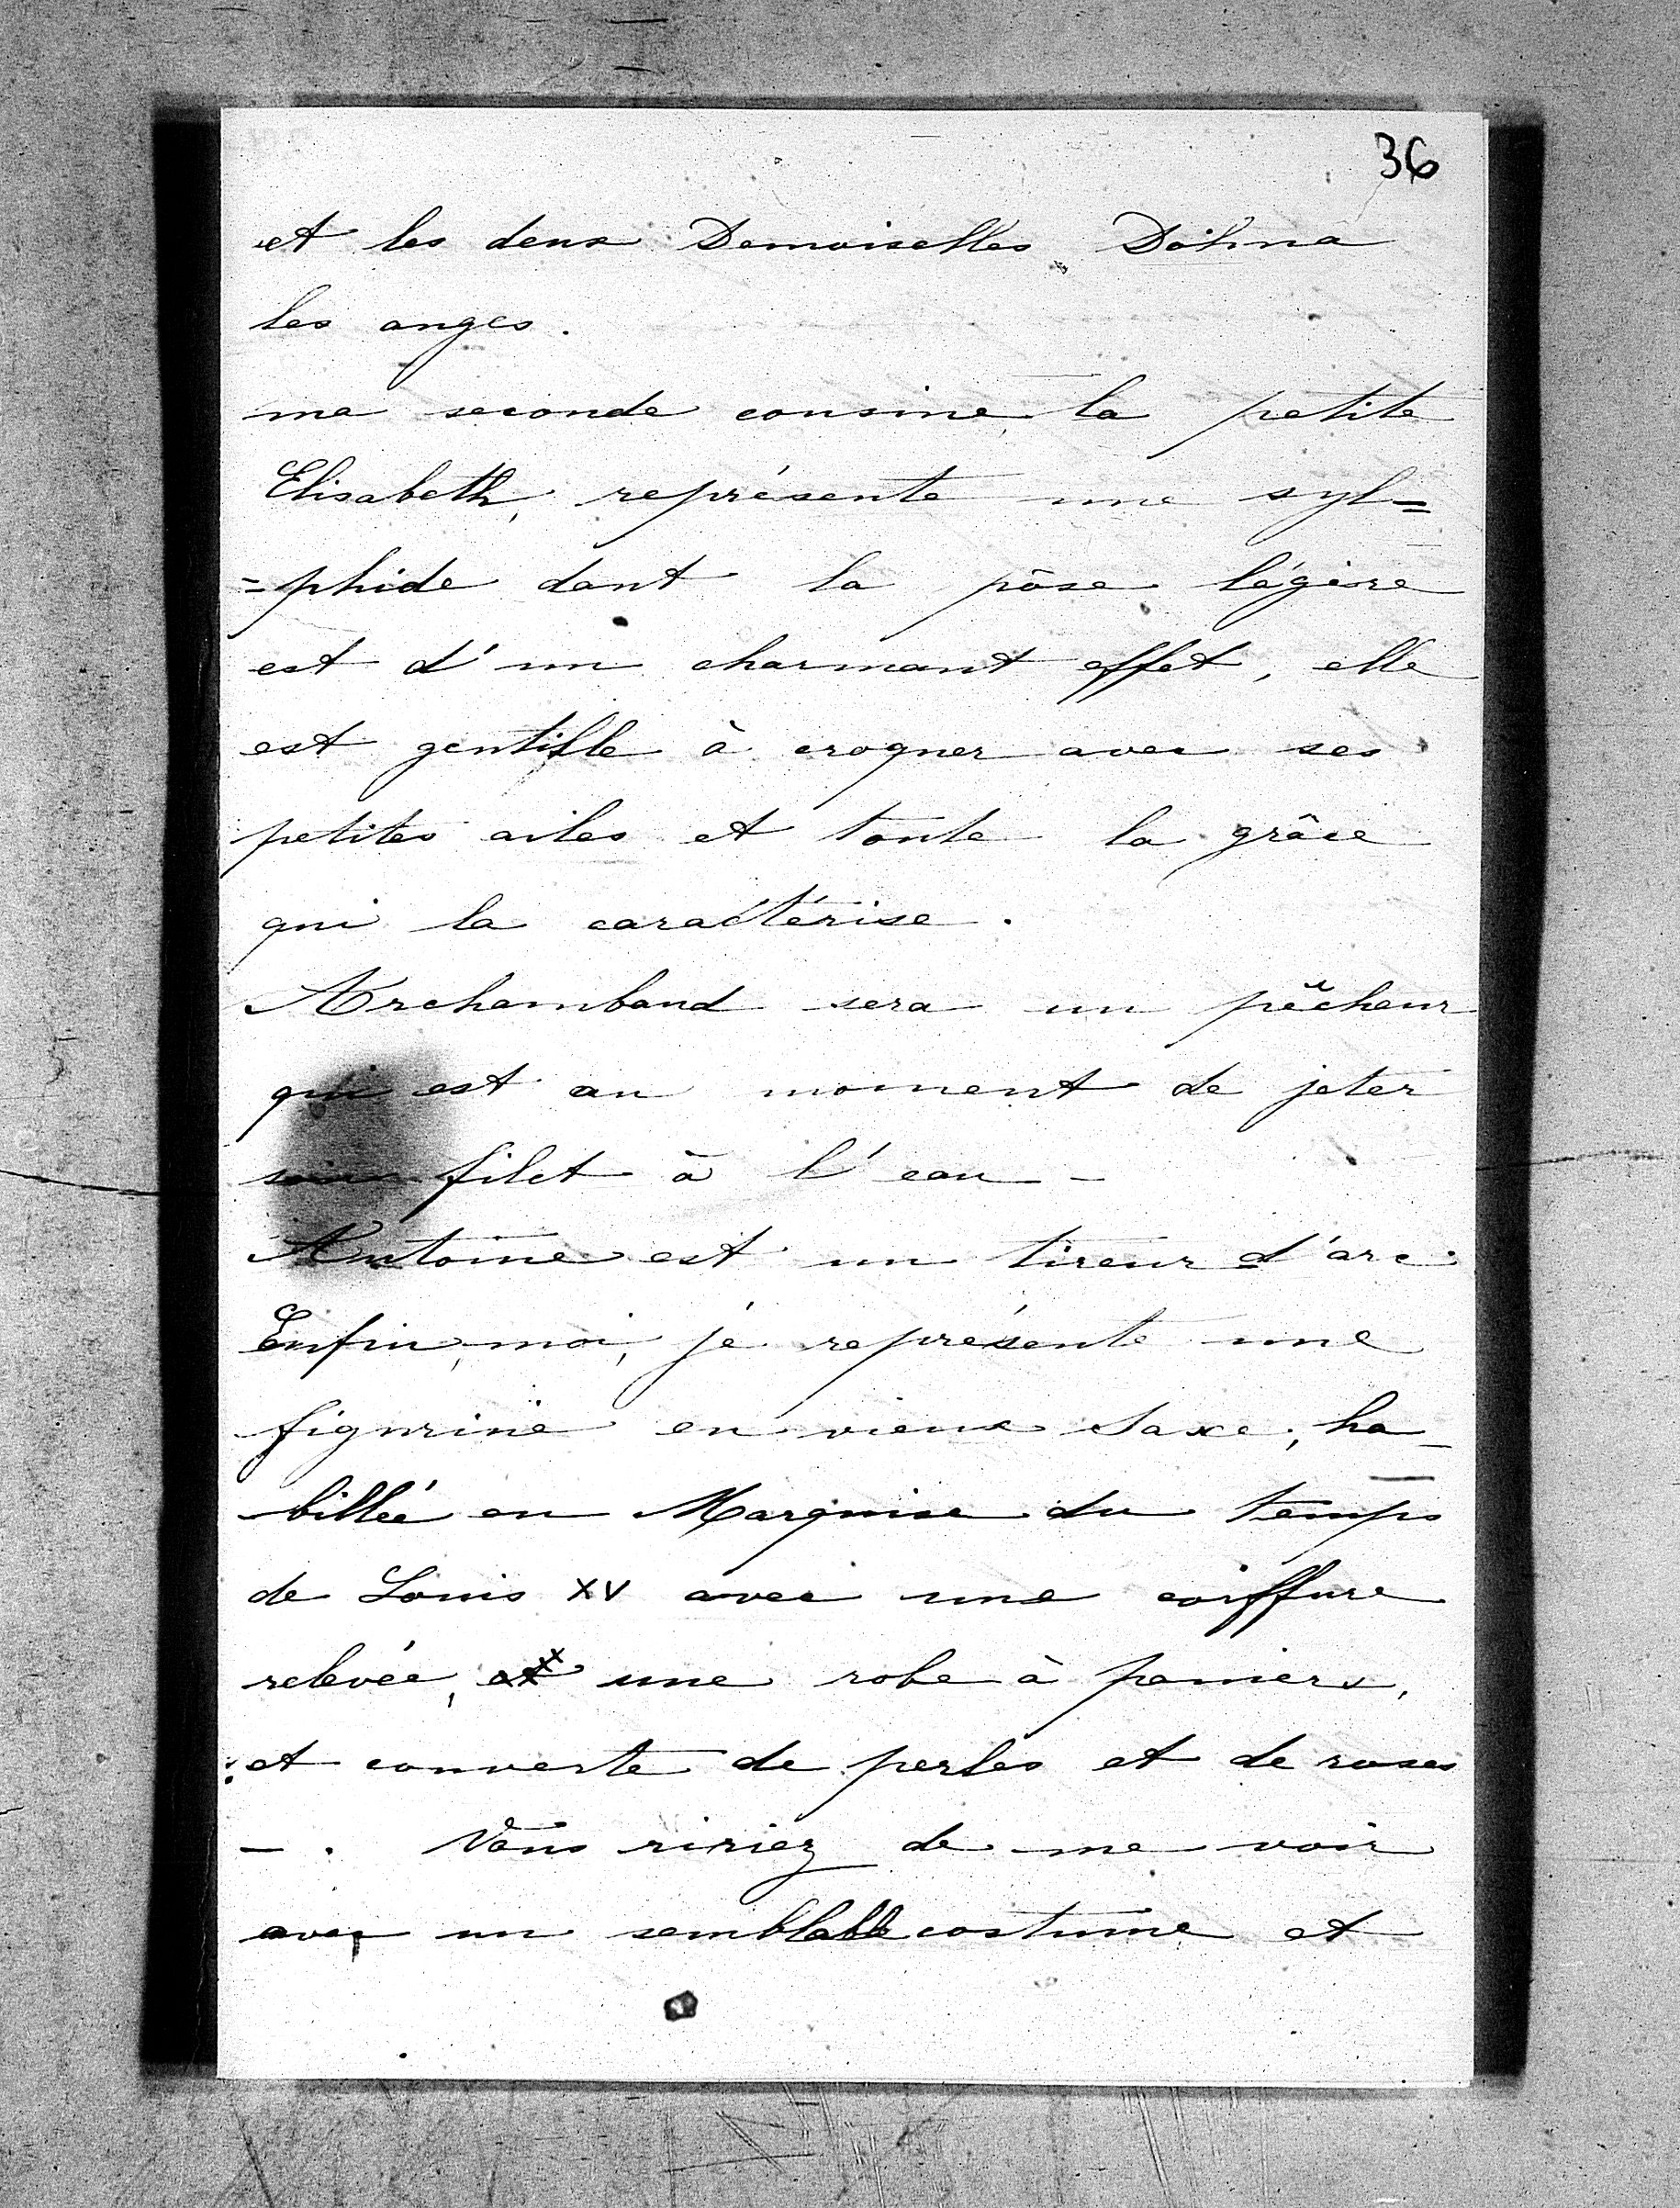 36
et les deux Demoiselles Döhna
les anges.
ma seconde cousine, la petite
Elisabeth, représente une syl=
=phide dont la pôse légère
est d'un charmant effet, elle
est gentille à croquer avec ses
petites ailes et toute la grâce
qui la caractérise.
Archambaud sera un pêcheur
qui est au moment de jeter
son filet à l'eau -
Antoine est un tireur d'arc.
Enfin, moi, je représente une
figurine en vieux Saxe, ha_
billée en Marquise du temps
de Louis XV avec une coiffure
relevée, et une robe à paniers,
et couverte de perles et de roses
- . Vous ririez de me voir
avec un semblable costume et